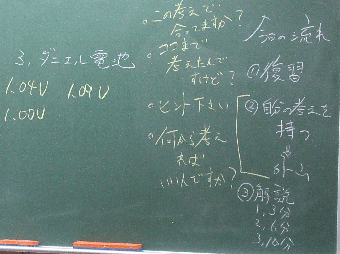 3. ダニエル電池
1.04V 1.09V
1.00V
・この考えで
合ってますか?
・ここまで
考えたんで
すけど?
・ヒント下さい
・何から考え
れば
いいんですか?
今日の流れ
①復習
②自分の考えを
持つ
↓
チーム
③解説